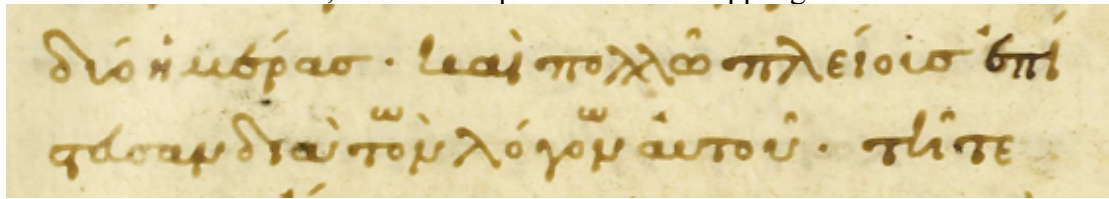 διό ἡμέρας · καὶ πολλῶ πλείοις ἐπί
ϛεσαν διὰ τὸν λόγον αὐτοῦ · τῆ τε